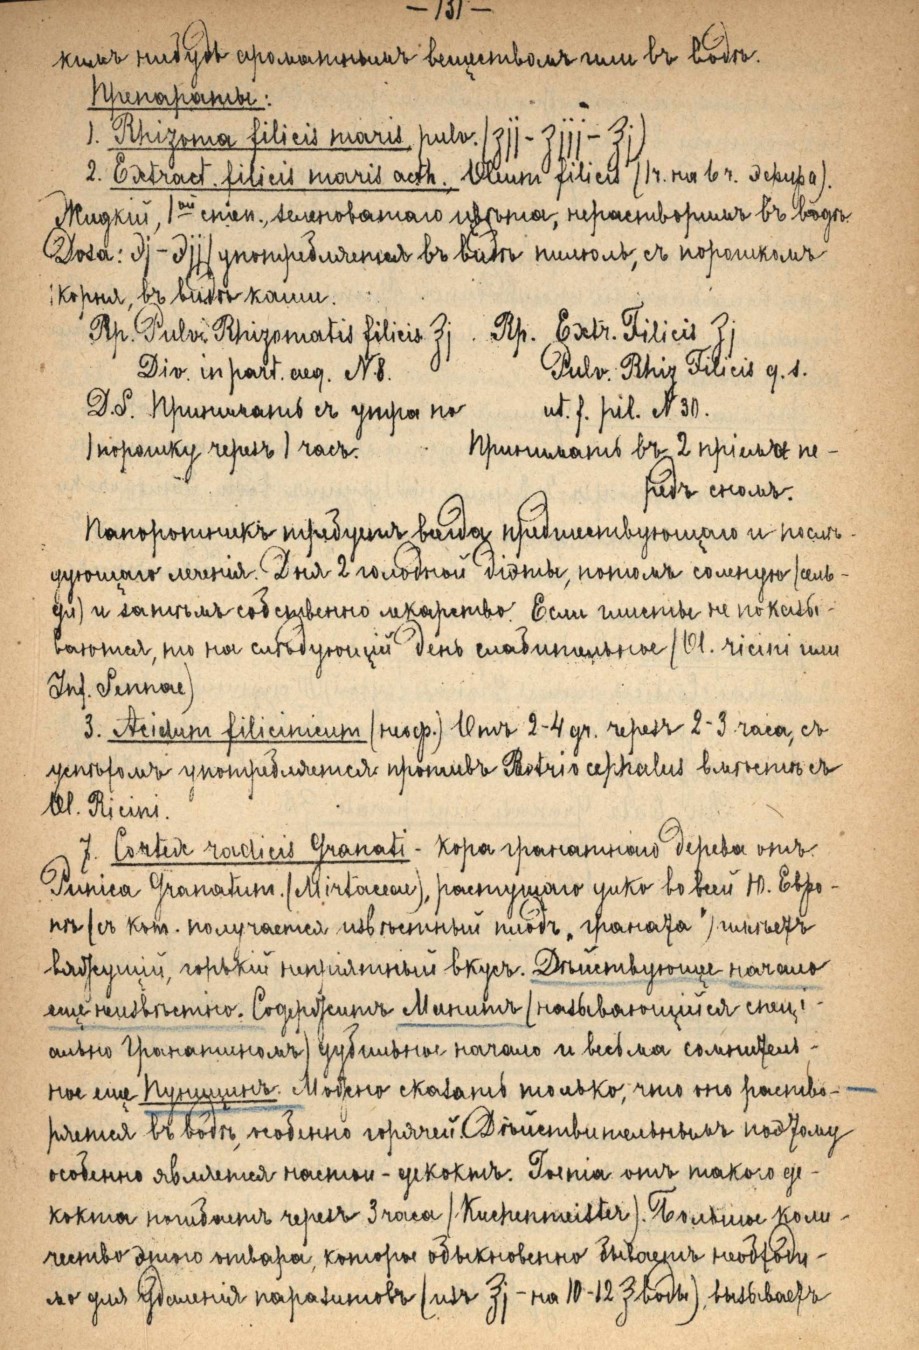 — 131 —
кимъ нибудь ароматнымъ веществомъ или въ водѣ.
Препараты:
1. Rhizoma filicis maris pulv. (ʒjj - ʒjjj - ℥j)
2. Extract. filicis maris aeth. Oleum filicis (1 ч. на 6 ч. эфира).
Жидкій, 1ой степ., зеленоватаго цвѣта, нерастворимъ въ водѣ.
Dosa: ℈j - ℈jj употребляется въ видѣ пилюль, съ порошкомъ
корня, въ видѣ каши.
Rp. Pulv. Rhizomatis filicis ℥j. Rp. Extr. Filicis ʒj
Div. in part. aeq. N 8. Pulv. Rhiz Filicis q. s.
D.S. Принимать съ утра по ut. f. pil. N 30.
1 порошку черезъ 1 часъ. Принимать въ 2 пріема пе-
редъ сномъ.
Папоротникъ требуетъ всегда предшествующаго и послѣ-
дующаго леченія. Дня 2 голодной діэты, потомъ соленую (сель-
ди) и затѣмъ собственно лекарство. Если глисты не показы-
ваются, то на слѣдующій день слабительное (Ol. ricini или
Inf. Sennae)
3. Acidum filicinicum (неоф.) Отъ 2-4 gr. черезъ 2-3 часа, съ
успѣхомъ употребляется противъ Botriocephalus вмѣстѣ съ
Ol. Ricini.
7. Cortex radicis Granati - кора гранатнаго дерева отъ
Punica Granatum. (Mirtaceae), растущаго дико во всей Ю. Евро-
пѣ (съ кот. получается извѣстный плодъ „граната") имѣетъ
вяжущій, горькій непріятный вкусъ. Дѣйствующее начало
еще неизвѣстно. Содержитъ Манитъ (называющійся спеці-
ально Гранатиномъ) дубильное начало и весьма сомнитель-
ное еще Пуницинъ. Можно сказать только, что оно раство-
ряется въ водѣ, особенно горячей. Дѣйствительнымъ поэтому
особенно является настои - декоктъ. Toenia отъ такого де-
кокта погибаетъ черезъ 3 часа (Kuchenmeister). Большое коли-
чество этого отвара, которое обыкновенно бываетъ необходи-
мо для удаленія паразитовъ (изъ ℥j - на 10-12 ℥ воды), вызываетъ